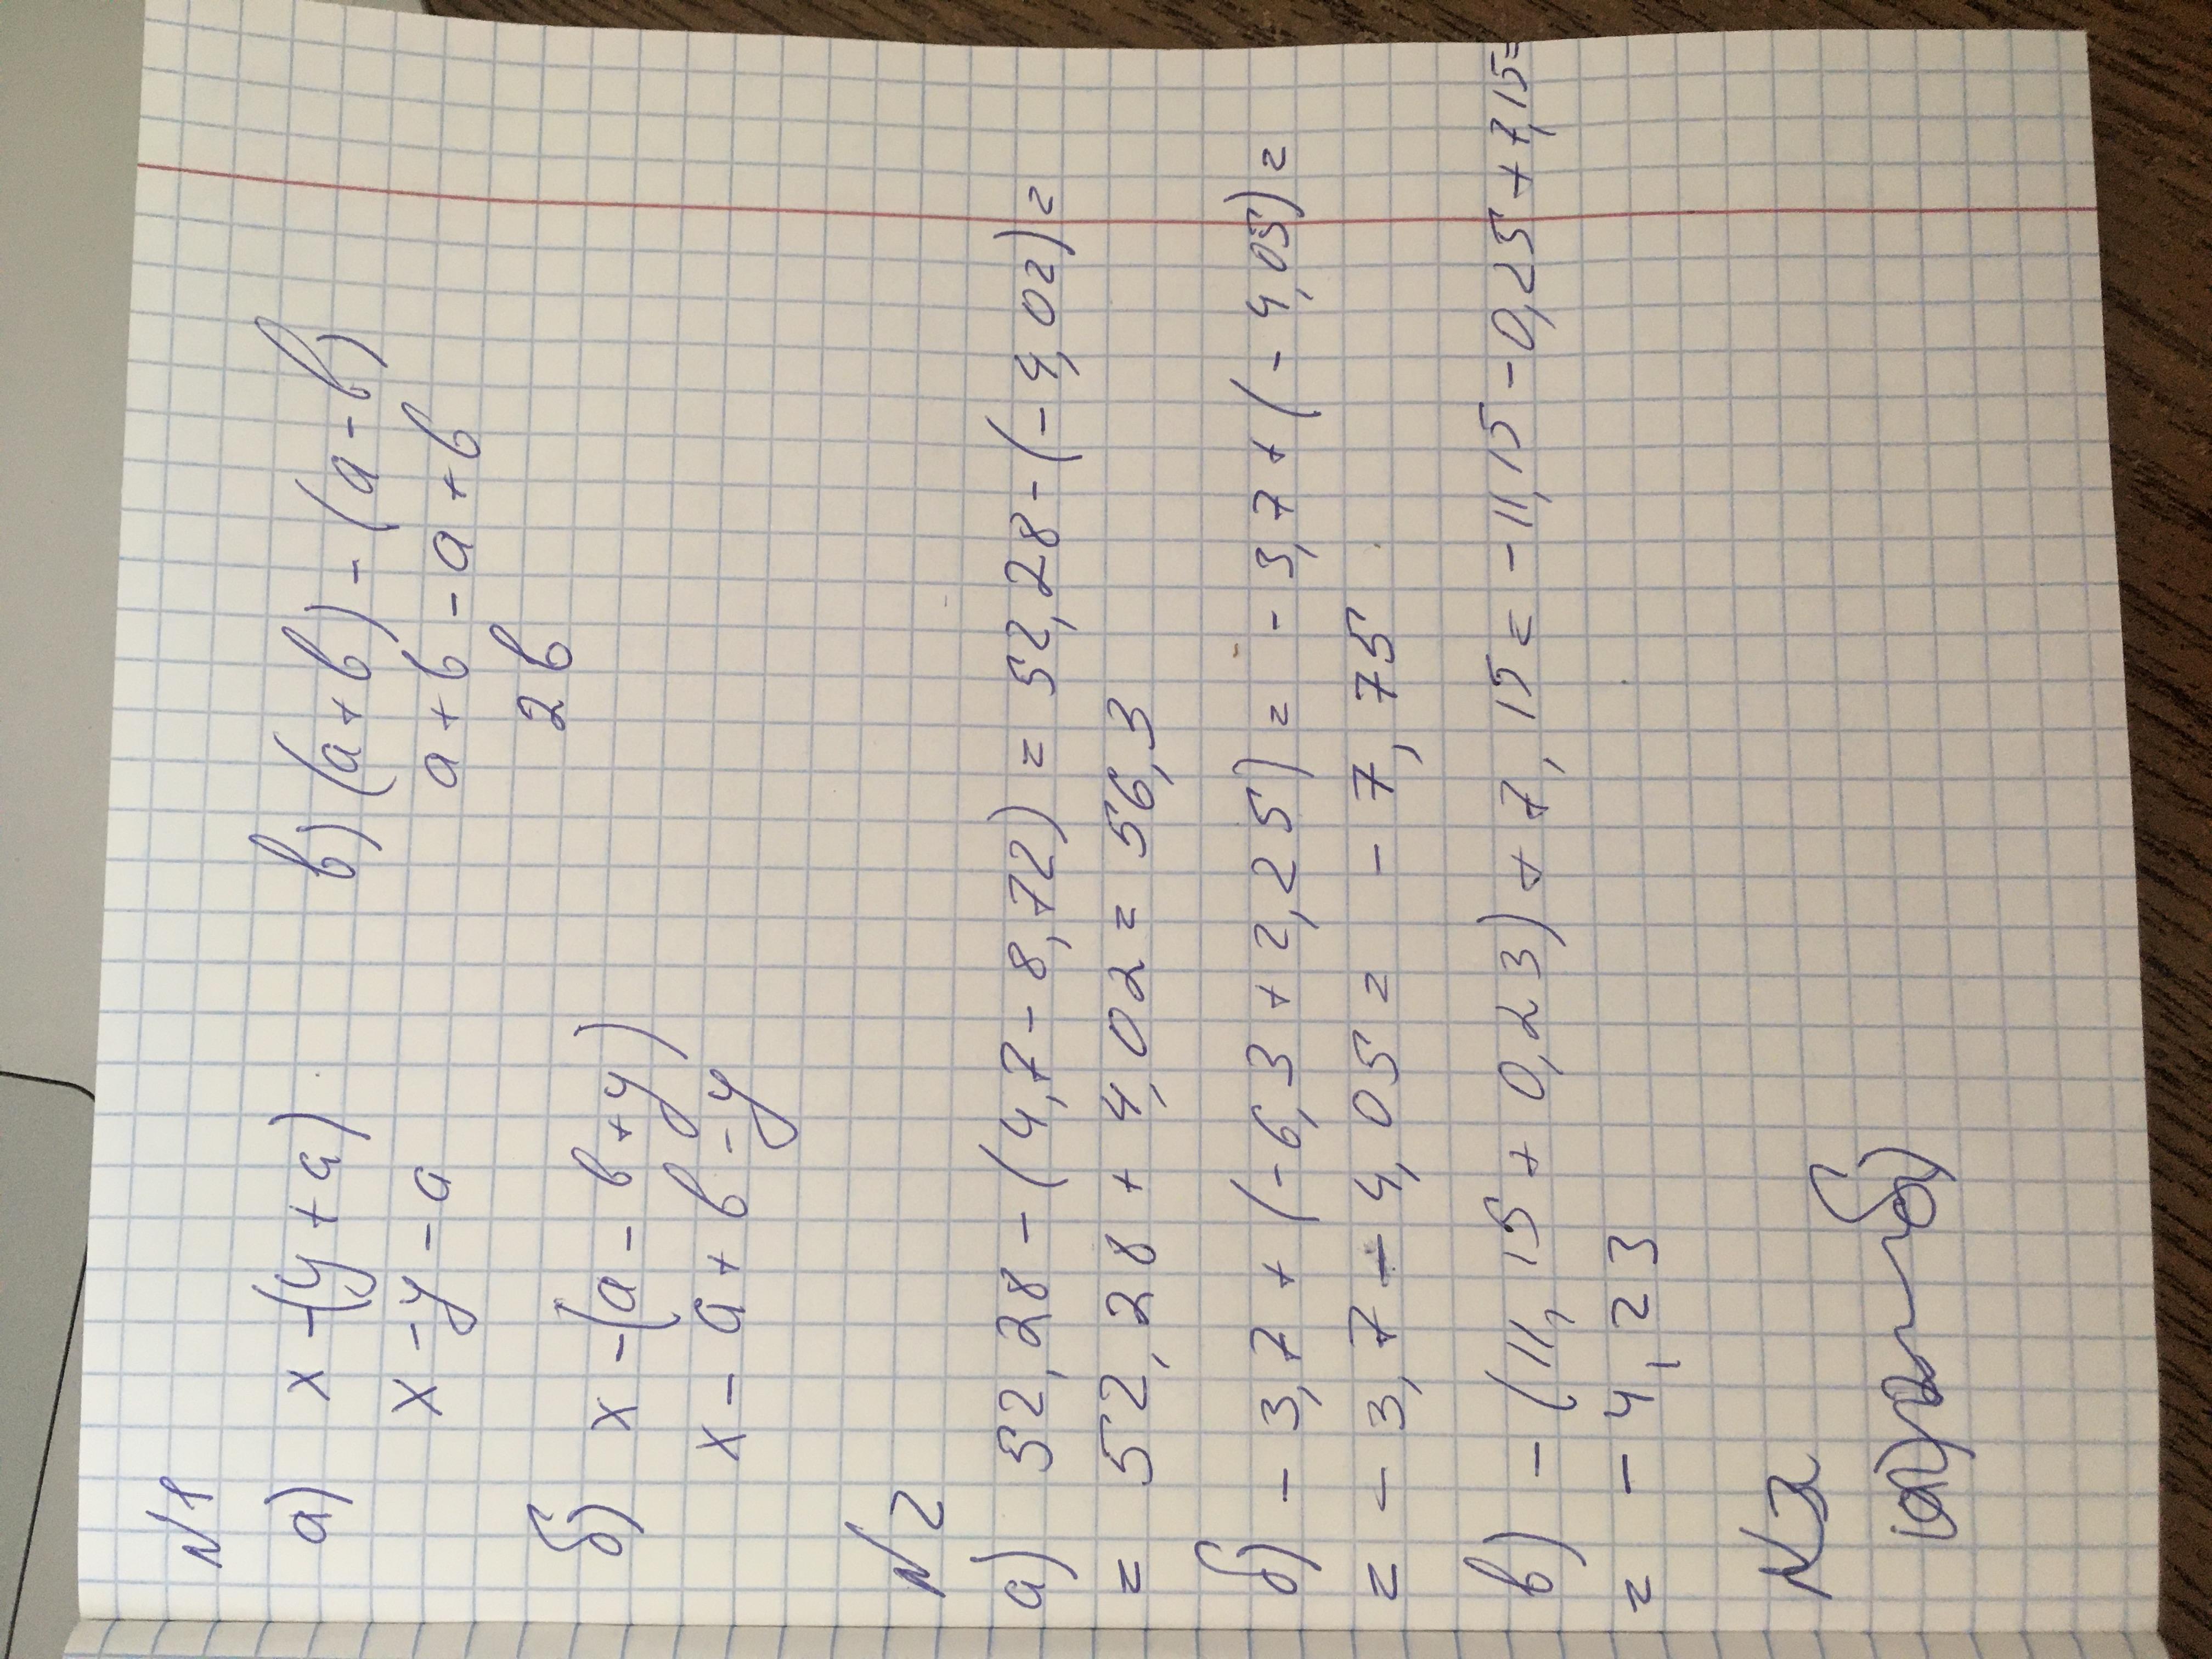 N1
а) x-(y+a)
x-y-a
б) x-(a-в+y)
x-a+в-y
в) (a+в)-(a-в)
a+в-a+в
2в
N2
а) 52,28-(4,7-8,72)=52,28-(-4,02)=
=52,28+4,02=56,3
б) -3,7+(-6,3+2,25)=-3,7+(-4,05)=
=-3,7-4,05=-7,75
в) -(11,15+0,23)+7,15=-11,15-0,25+7,15=
=-4,23
N3